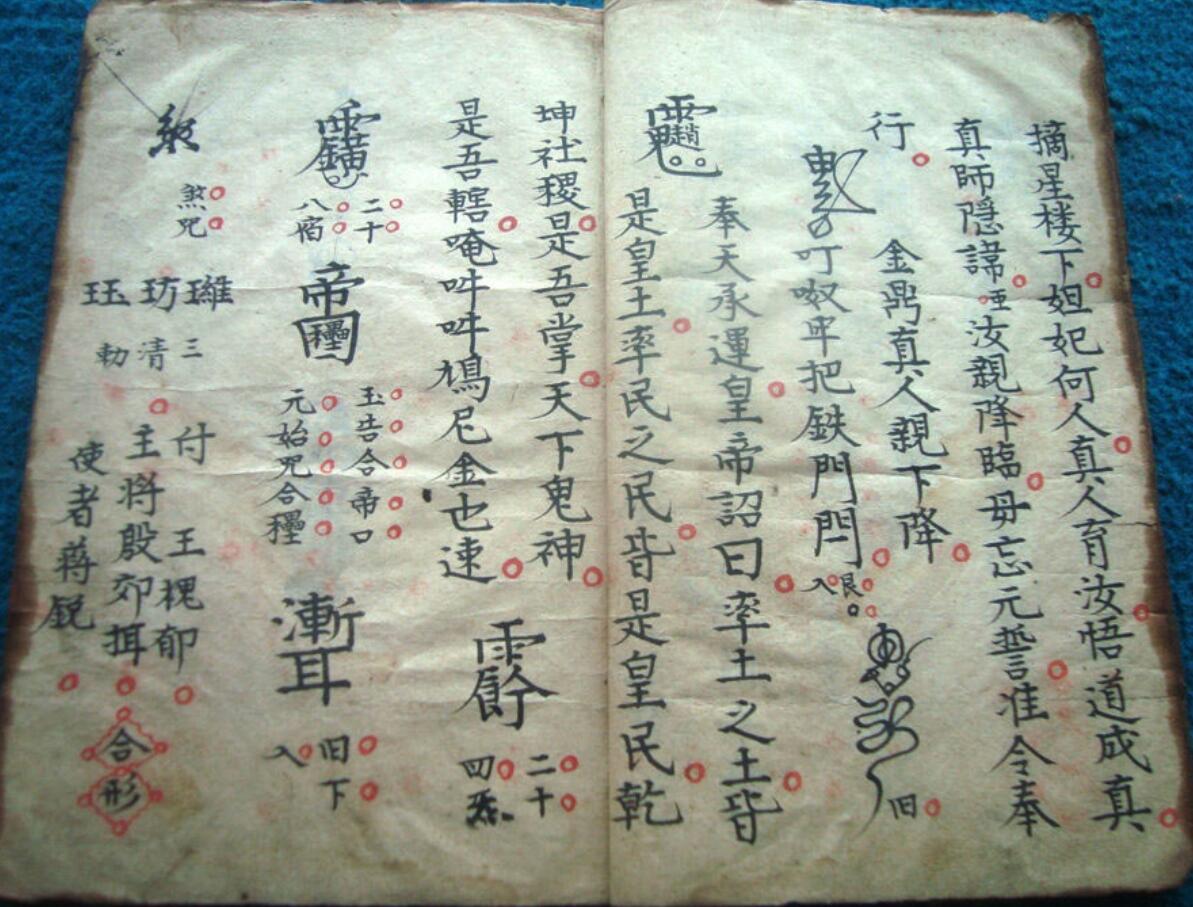 摘星楼下妲妃何人真人育汝悟道成真
真師隱諱 汝親降臨毋忘元誓准令奉
行 金鼎真人親下降
叮呶牢把鉄門閂 艮口入
旧
奉天承運皇帝詔曰率土之土皆
是皇土率民之民皆是皇民乾
坤社稷是吾掌天下鬼神
是吾轄唵吽吽鳩尼金也速
二十四炁
二十八宿
帝
玉告合帝口
元始咒合
漸耳
旧下入
煞咒
玨
三清勅
付 王槐郁
主將殷郊
使者蒋銳
合形